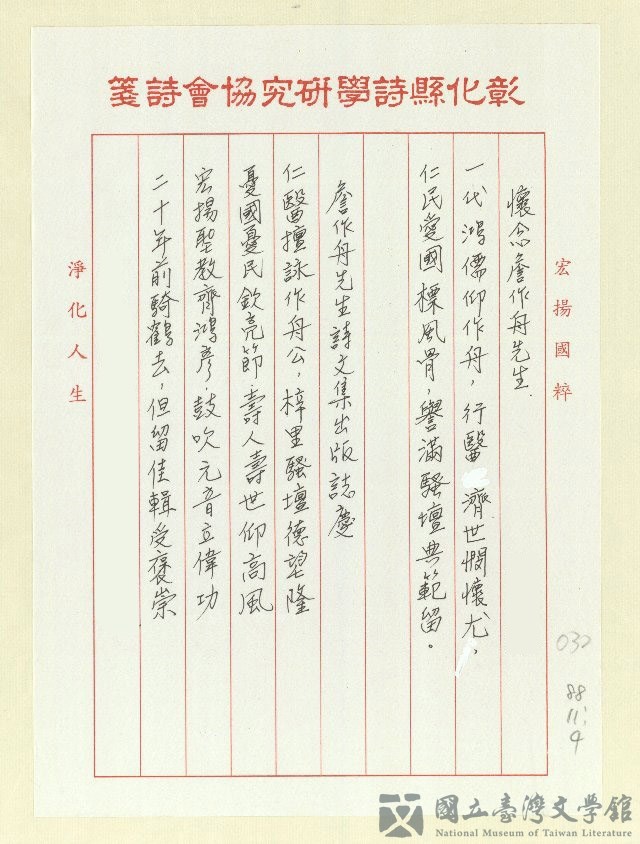 彰化縣詩學研究協會詩箋
宏揚國粹
懷念詹作舟先生.
一代鴻儒仰作舟，行醫濟世憫懷尤，
仁民愛國標風骨，譽滿騷壇典範留。
詹作舟先生詩文集出版誌慶
仁醫擅詠作舟公，梓里騷壇德望隆
憂國憂民欽亮節.壽人壽世仰高風
宏揚聖教齊鴻彥.鼓吹元音立偉功
二十年前騎鶴去，但留佳輯受褒崇
淨化人生
032
88
11:
4
國立臺灣文學館
National Museum of Taiwan Literature